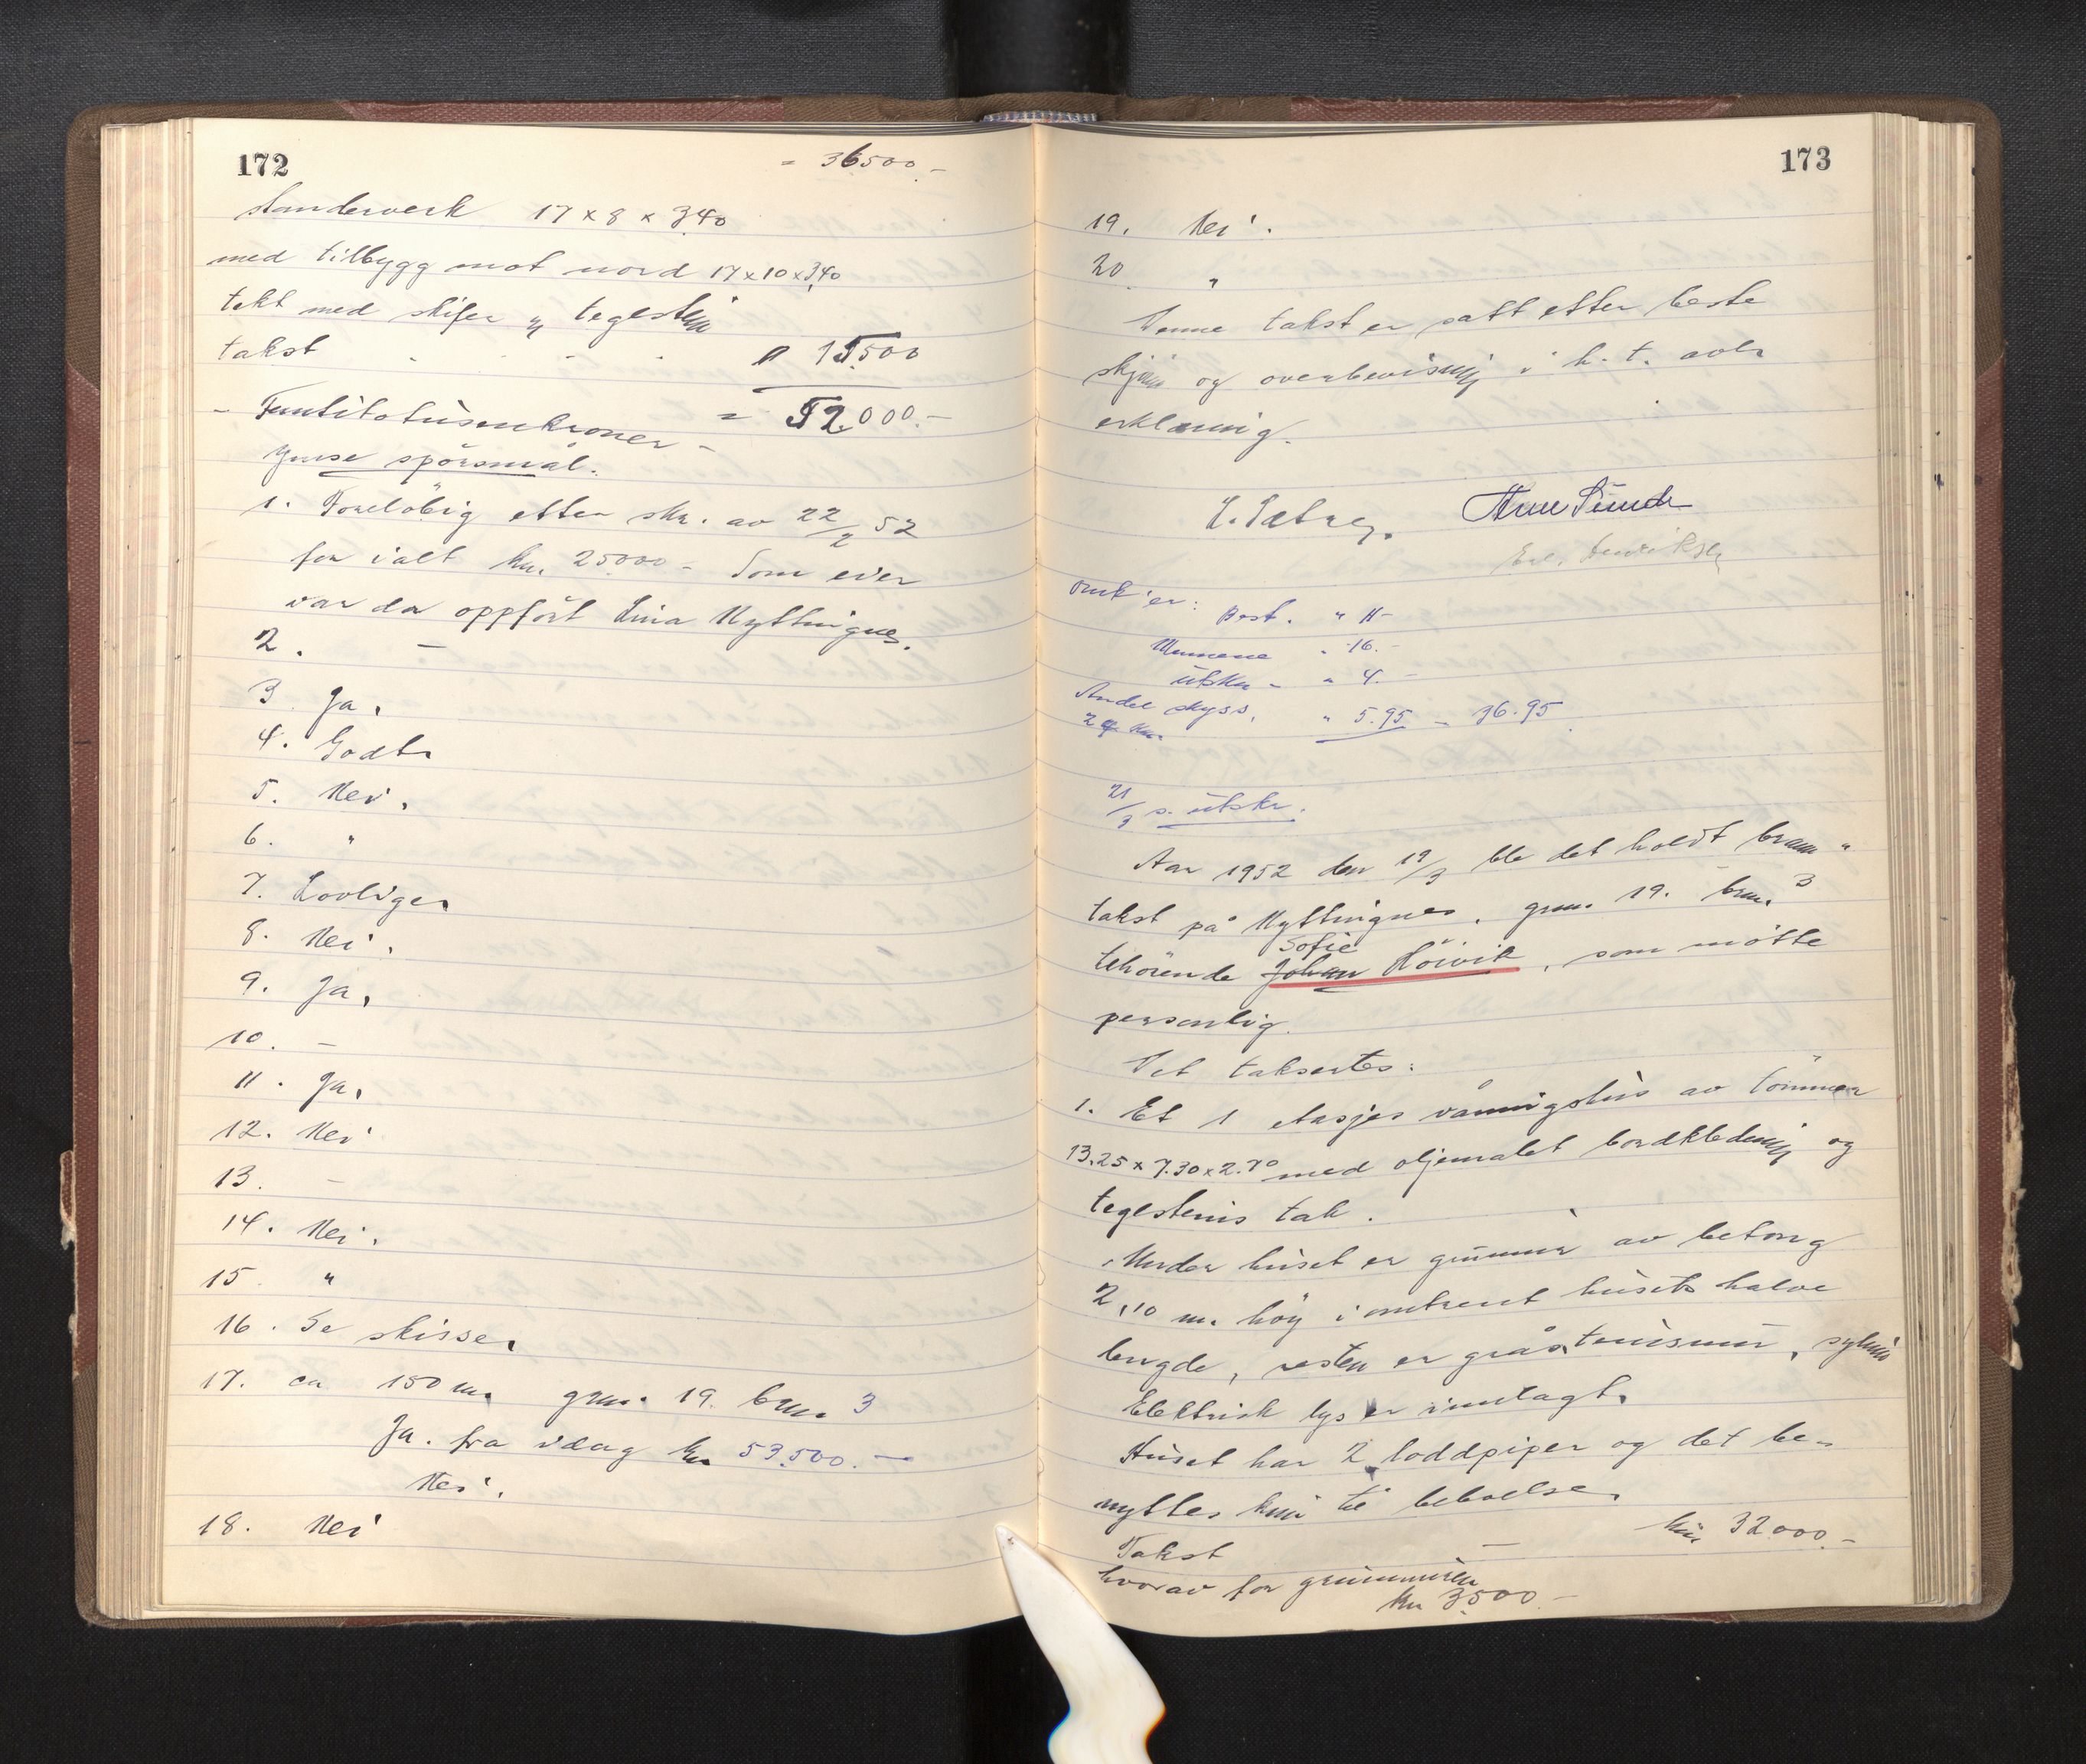 172
= 36500.-
standerverk 17 x 8 x 3.40
med tilbygg mot nord 17x10x3,40
tekt med skifer og teglstein
takst - - - " 15500
- Femtitotusenkroner - = 52.000.-
Ymse spörsmål.
1. Foreløbig etter skr. av 22/2 52
for ialt kr. 25000 - Som eier
var da oppfört Lina Myttingnes.
2. -
3 Ja.
4. Godt.
5. Nei.
6. "
7. Lovlige.
8. Nei.
9. Ja.
10. -
11. Ja.
12. Nei
13. -
14. Nei.
15. "
16. Se skisse.
17. ca 150 m. gnr. 19. brnr. 3
Ja. fra idag kr 53.500.-
Nei.
18. Nei
173
19. Nei.
20 "
Denne takst er satt etter beste
skjønn og overbevisning i h. t. avlr
erklæring.
L. Sætre,
Omk'er:
Best. " 11-
Mennene " 16.-
Utskr - " 4.-
Andel skyss. " 5.95 - 36.95
21/3 s. utskr.
Aar 1952 den 19/3 ble det holdt brann "
takst på Myttingnes, gnr. 19. brnr. 3
tehörende Johan Höivik, som mötte
Sofie
personlig.
Det taksertes:
1. Et 1 etasjes våningshus av tömmer
13.25 x 7.30 x 2.70 med oljemalet bordkledning og
teglsteins tak.
Under huset er grunnmur av betong
2,10 m. höy i omtrent husets halve
lengde, resten er gråsteinsmur,
Elektrisk lys er innlagt.
Huset har 2 loddpiper og det be-
nyttes kun til beboelse.
Takst - kr. 32000.-
hvorav for grunnmuren
kr 3500.-